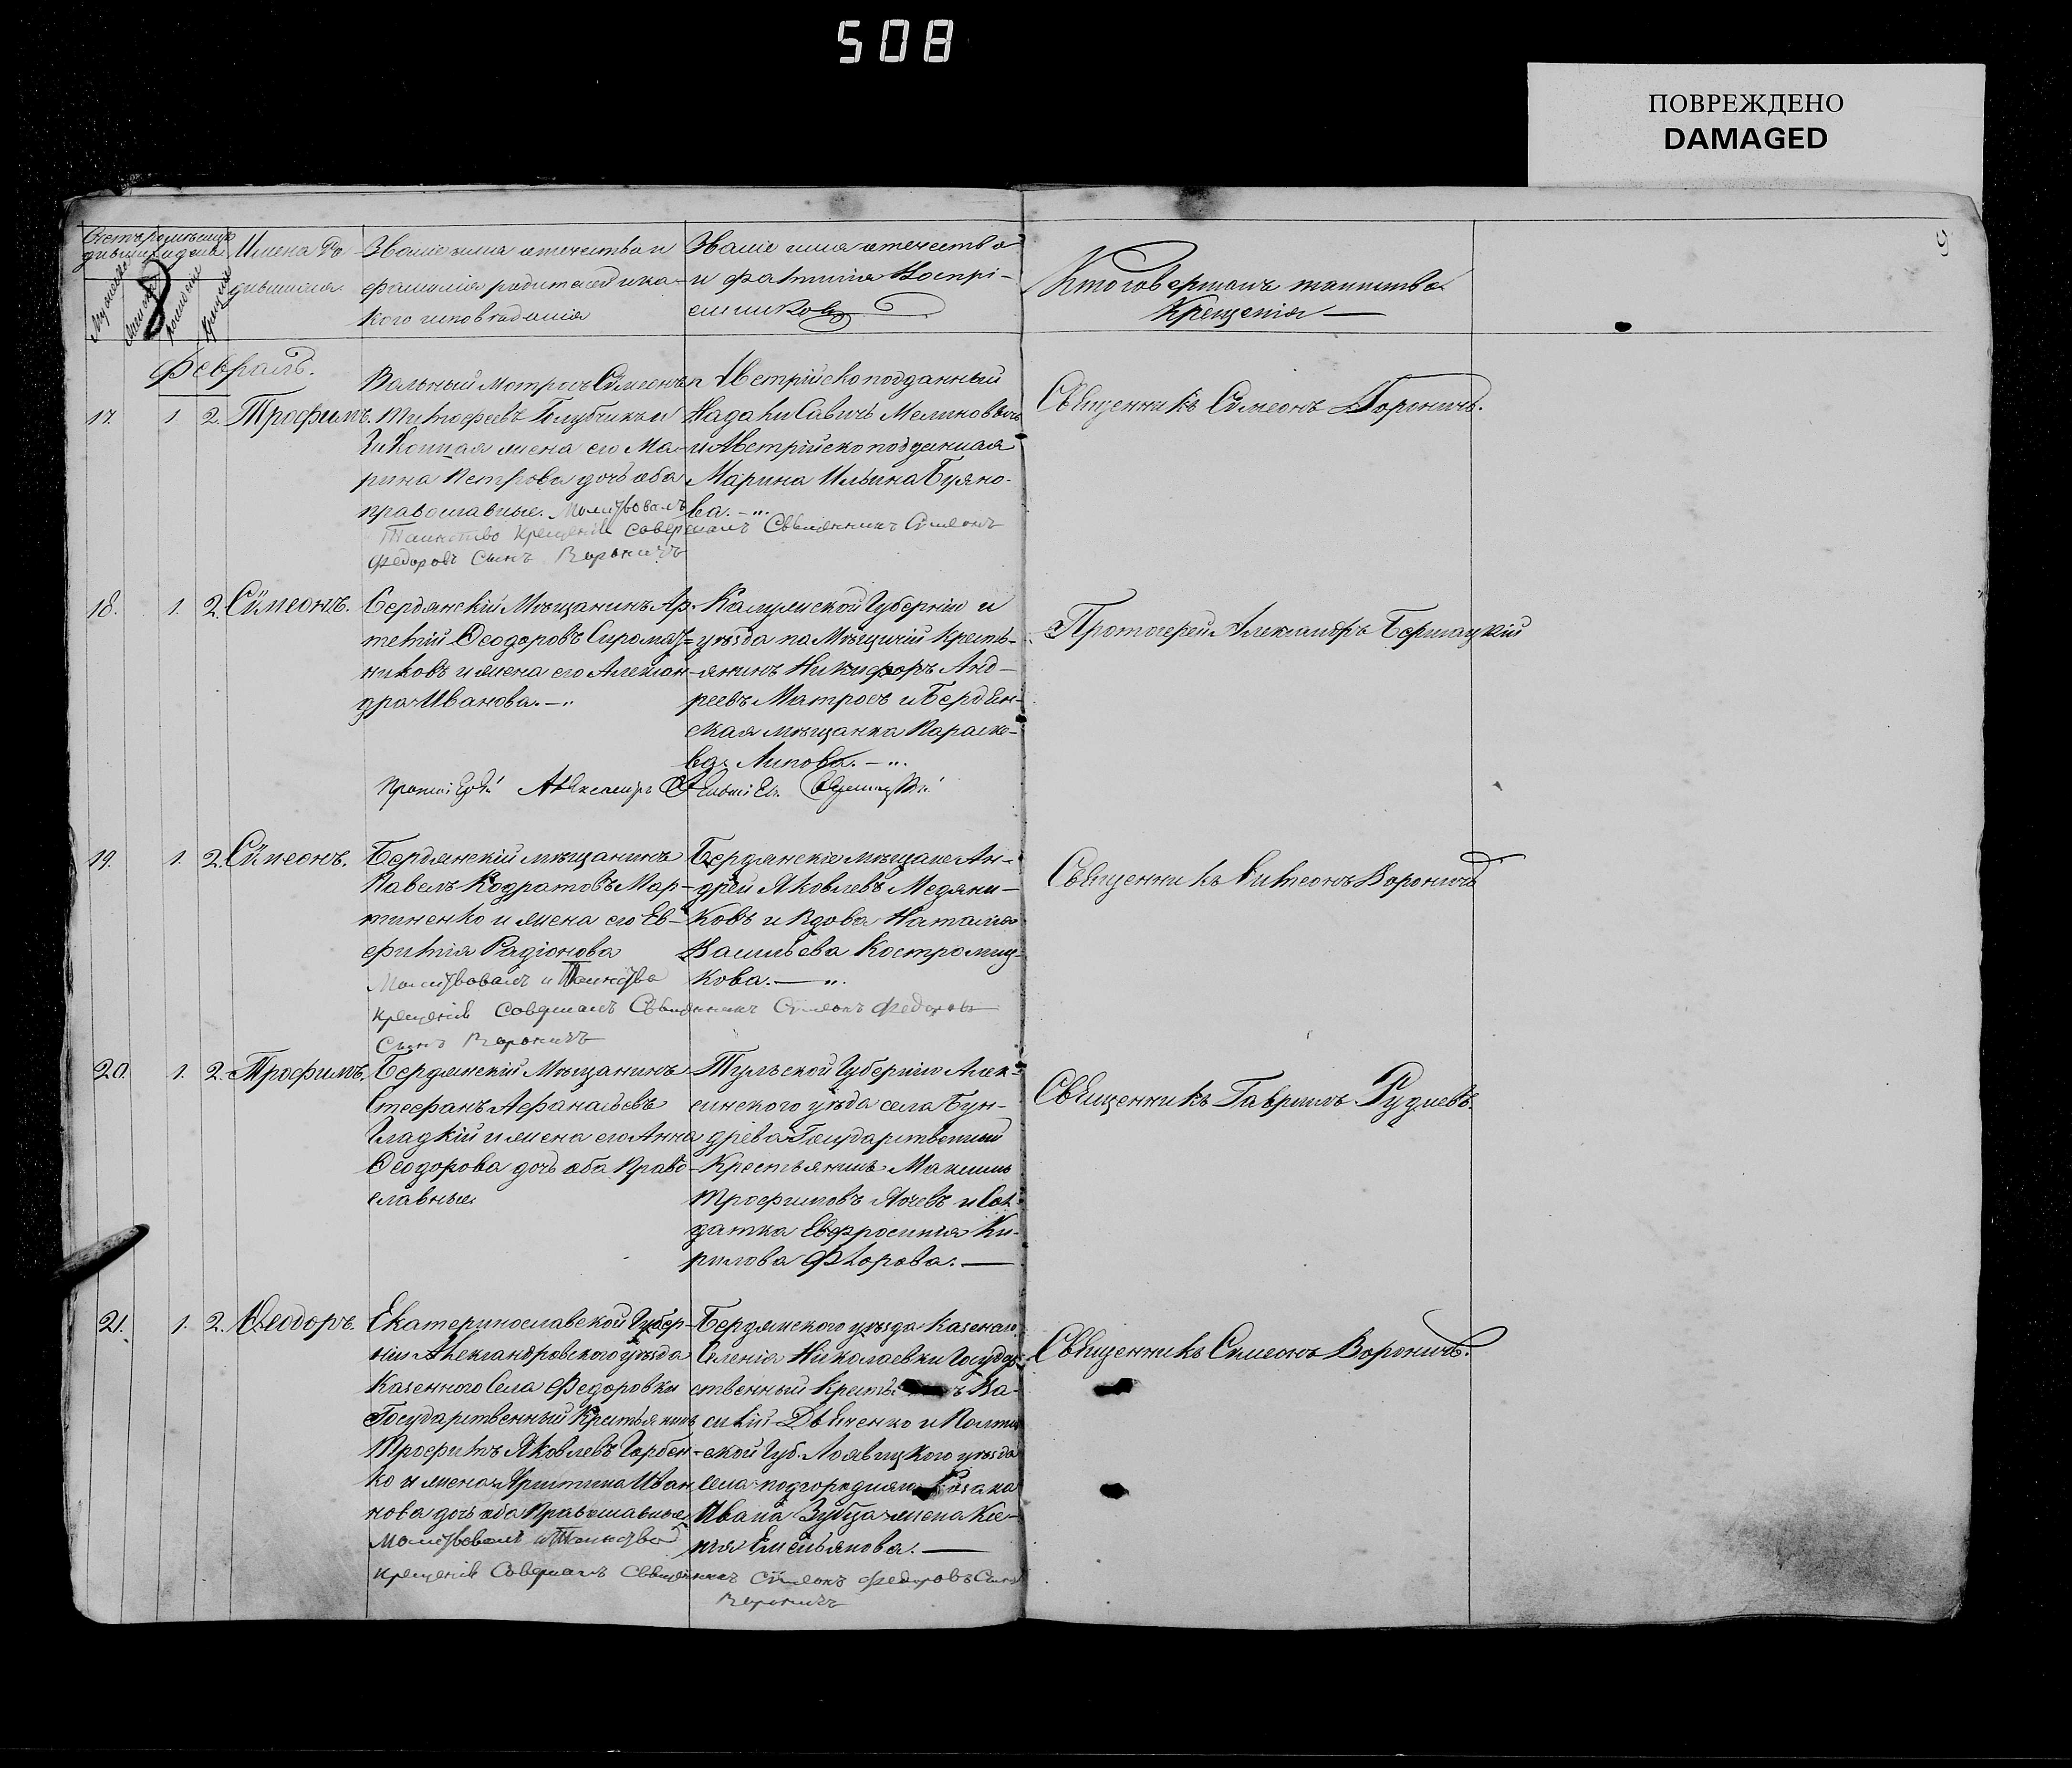 508
ПОВРЕЖДЕНО
DAMAGED
9
Счетъ родившихся
Имена Ро-
дившихся.
Званіе имя отечество и
фамилія родителей и ка-
кого исповеданія
Званіе имя отечество
и фамилія воспрі-
емниковъ
Кто совершалъ таинство
Крещенія —
8
Февраль.
17. 1. 2. Трофимъ.
Вольный Матросъ Симеонъ
Тимофеевъ Голубчикъ и
Законная жена его Ма-
рина Петрова дочь оба
православные. Молитвовалъ
Таинство Крещенія совершалъ Священникъ Симеонъ
Федоровъ Сынъ Вороничъ
Австрійско подданный
Савичъ
и Австрійско подданная
Марина Ильина Буяно-
ва. — „.
Священникъ Симеонъ Вороничъ.
18. 1. 2. Симеонъ.
Бердянскій Мѣщанинъ Ар-
темій Ѳеодоровъ Сиромят-
никовъ и жена его Алексан-
дра Иванова. — „.
Калужской Губерніи и
уѣзда Кресть-
янинъ Никифоръ Анд-
реевъ Матросъ и Бердян-
ская мѣщанка Параске-
ва Липова. — „.
Протоіерей Александръ
Протоіерей Александръ
19. 1. 2. Симеонъ.
Бердянскій мѣщанинъ
Павелъ Кодратовъ Мар-
тиненко и жена его Ев-
фимія Радіонова
Молитвовалъ и Таинство
крещенія Совершалъ Священникъ Симеонъ Федоровъ
Сынъ Вороничъ
Бердянскіе мѣщане Ан-
дрей Яковлевъ Медяни-
ковъ и Вдова Наталія
Васильева Костромщ-
кова. — „.
Священникъ Симеонъ Вороничъ
20. 1. 2. Трофимъ.
Бердянскій Мѣщанинъ
Стефанъ Афанасьевъ
Гладкій и жена его Анна
Ѳеодорова дочь оба Право-
славные.
Тульской Губерніи Алек-
синского уѣзда села Бун-
древа Государственный
Крестьянинъ Максимъ
Трофимовъ и Сол-
датка Евфросинія Ки-
рилова Флорова. —
Священникъ Гавріилъ Рудневъ.
21. 1. 2. Ѳеодоръ.
Екатеринославской Губер-
ніи Александровского уѣзда
Казенного Села Федоровки
Государственный Крестьянинъ
Трофимъ Яковлевъ Горбен-
ко и жена Христина Иван
нова дочь оба Православные
Молитвовалъ и Таинство
крещенія Совершалъ Священникъ Симеонъ Федоровъ Сынъ
Вороничъ
Бердянского уѣзда Казенаго
Селенія Николаевки Государ-
ственный Кресть ъ Ва-
силій Дьяченко и Полтав
ской Губ. уѣзда
села Козака
Ивана Зубца жена Ксе-
нія Емельянова. —
Священникъ Симеонъ Вороничъ.